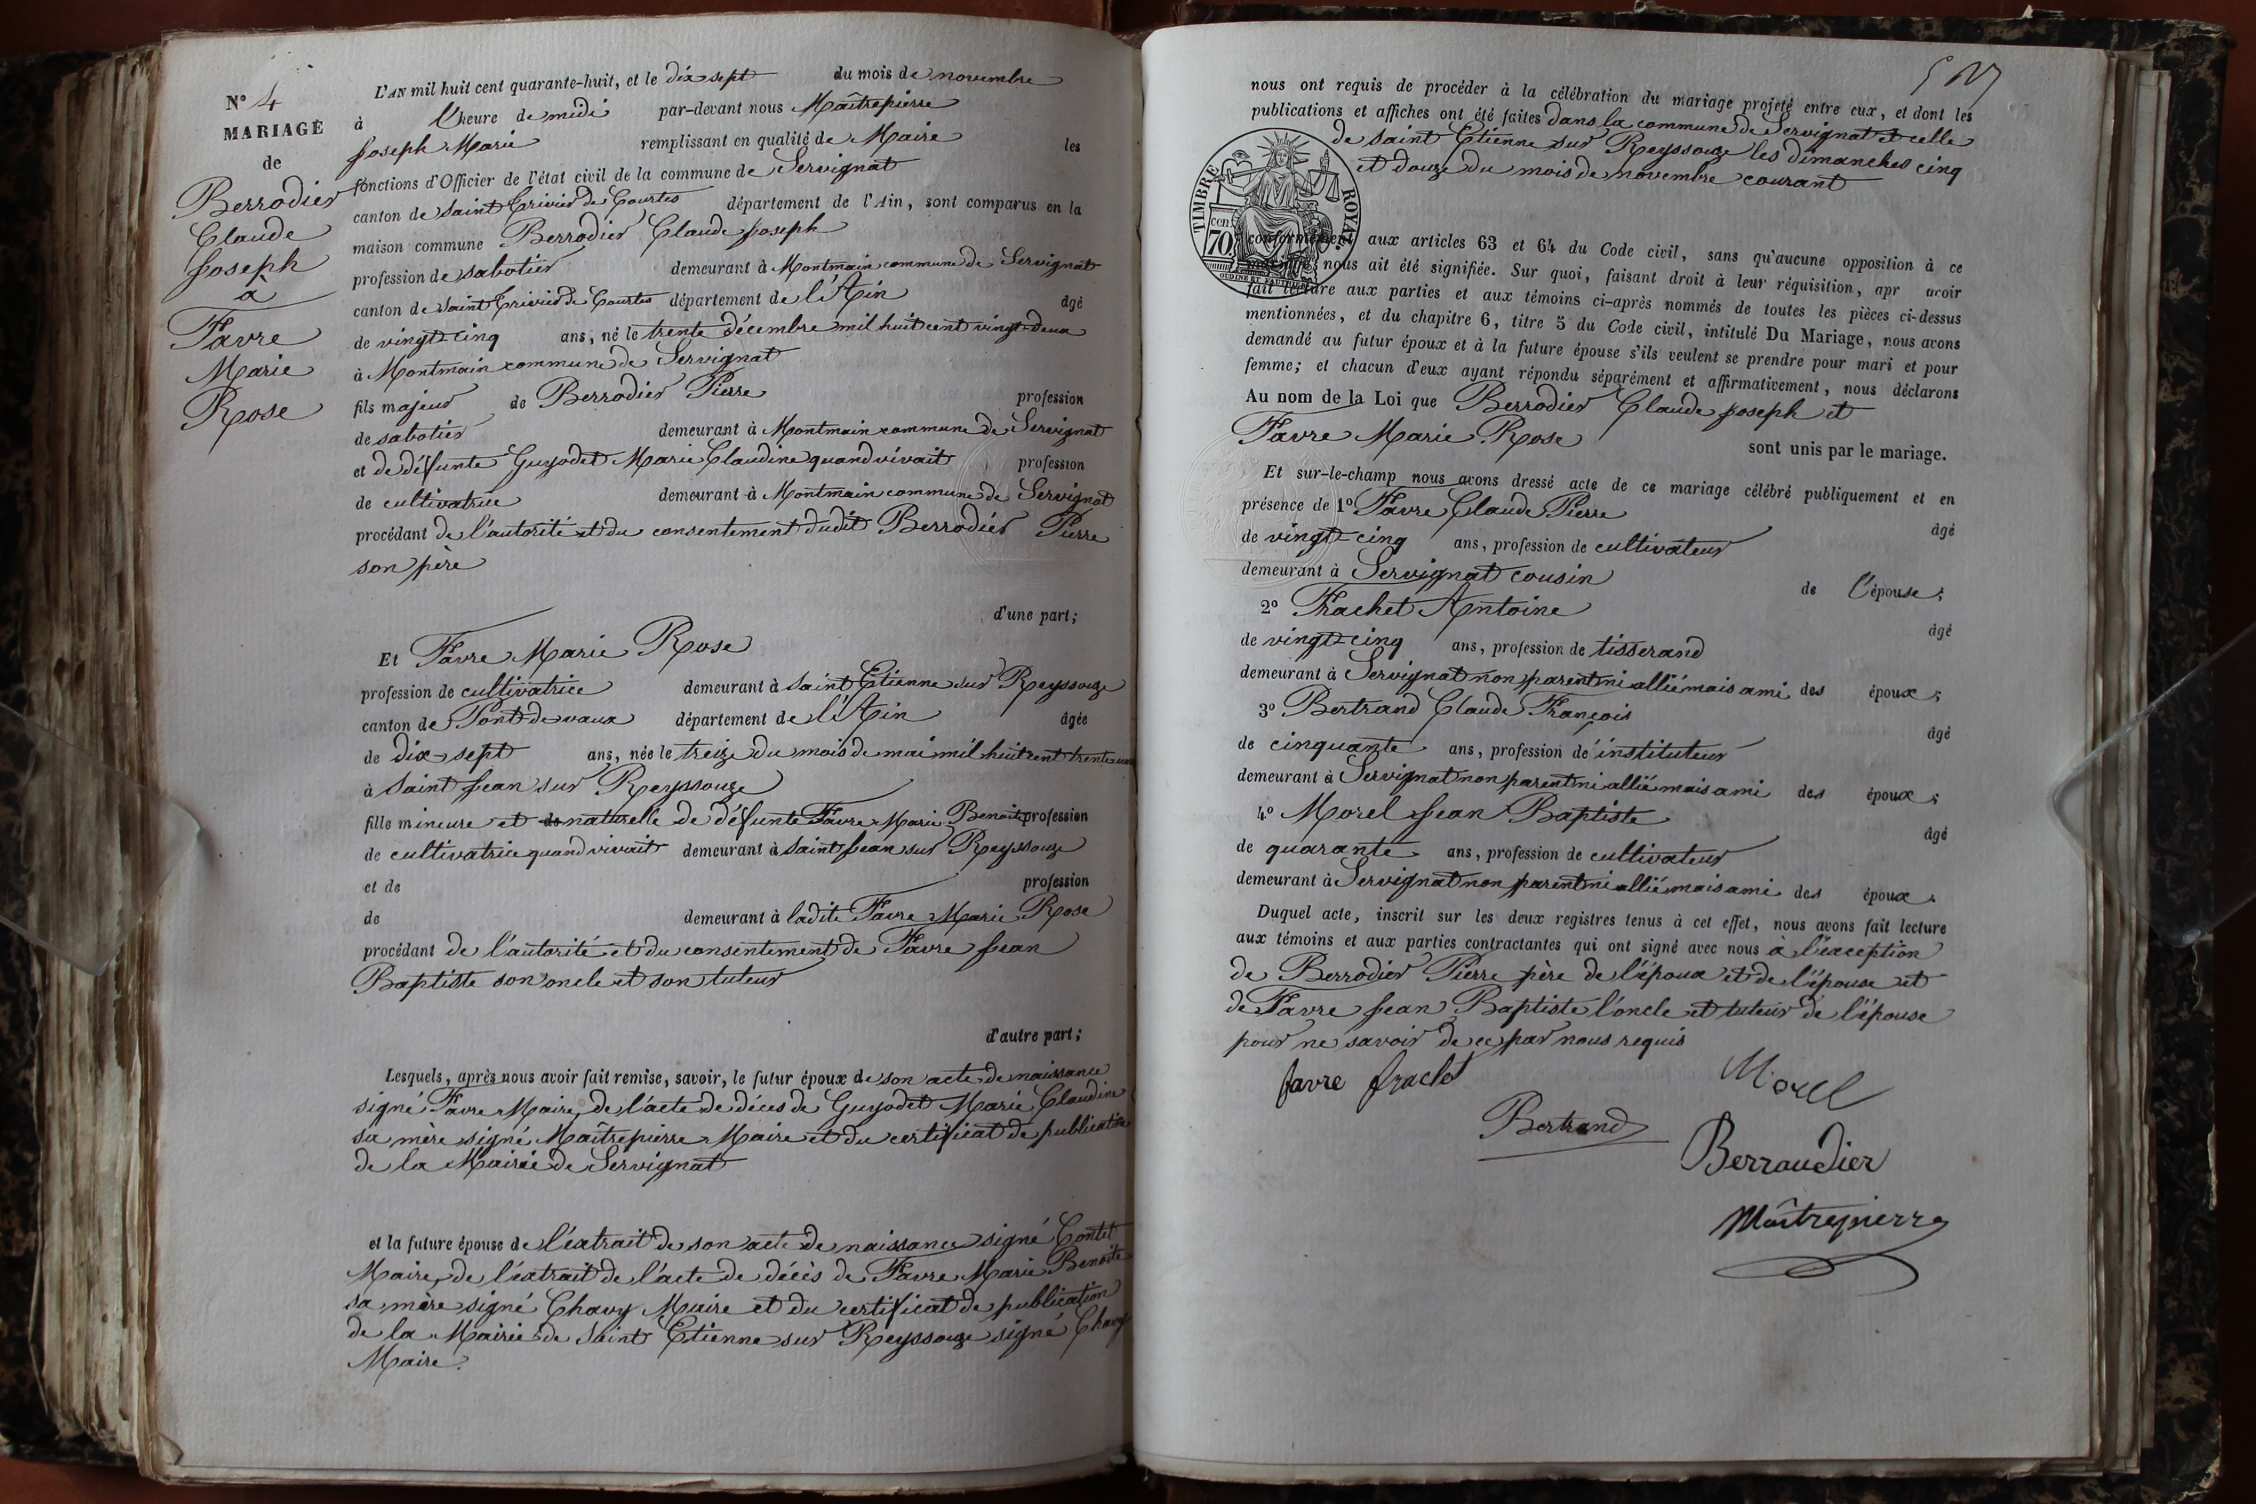 N° 4
MARIAGE
de
Berrodier
Claude
Joseph
à
Favre
Marie
Rose
L'AN mil huit cent quarante-huit, et le dix sept du mois de novembre
à l'heure de midi par-devant nous Maîtrepierre
Joseph Marie remplissant en qualité de Maire les
fonctions d'Officier de l'état civil de la commune de Servignat
canton de Saint Trivier de Courtes département de l'Ain, sont comparus en la
maison commune Berrodier Claude Joseph
profession de sabotier demeurant à Montmain commune de Servignat
canton de Saint Trivier de Courtes département de l'Ain âgé
de vingt-cinq ans, né le trente décembre mil huit cent vingt-deux
à Montmain commune de Servignat
fils majeur de Berrodier Pierre profession
de sabotier demeurant à Montmain commune de Servignat
et de défunte Guyodet Marie Claudine quand vivait profession
de cultivatrice demeurant à Montmain commune de Servignat
procédant de l'autorité et du consentement dudit Berrodier Pierre
son père
d'une part;
Et Favre Marie Rose
profession de cultivatrice demeurant à Saint Etienne sur Reyssouze
canton de Pont-de-vaux département de l'Ain âgée
de dix-sept ans, née le treize du mois de mai mil huit cent trente-un
à Saint Jean sur Reyssouze
fille mineure et de naturelle de défunte Favre Marie Benoite profession
de cultivatrice quand vivait demeurant à Saint Jean sur Reyssouze
et de profession
de demeurant à ladite Favre Marie Rose
procédant de l'autorité et du consentement de Favre Jean
Baptiste son oncle et son tuteur
d'autre part;
Lesquels, après nous avoir fait remise, savoir, le futur époux de son acte de naissance
signé Favre Maire, de l'acte de décès de Guyodet Marie Claudine
sa mère signé Maîtrepierre Maire et du certificat de publication
de la Mairie de Servignat
et la future épouse de l'extrait de son acte de naissance signé Contet
Maire, de l'extrait de l'acte de décès de Favre Marie Benoite
sa mère signé Chavy Maire et du certificat de publication
de la Mairie de Saint Etienne sur Reyssouze signé Chavy
Maire.
nous ont requis de procéder à la célébration du mariage projeté entre eux, et dont les
publications et affiches ont été faites dans la commune de Servignat & celle
de Saint Etienne sur Reyssouze les dimanches cinq
et douze du mois de novembre courant
TIMBRE ROYAL
cen
70
conformément aux articles 63 et 64 du Code civil, sans qu'aucune opposition à ce
mariage nous ait été signifiée. Sur quoi, faisant droit à leur réquisition, apr avoir
fait lecture aux parties et aux témoins ci-après nommés de toutes les pièces ci-dessus
mentionnées, et du chapitre 6, titre 5 du Code civil, intitulé Du Mariage, nous avons
demandé au futur époux et à la future épouse s'ils veulent se prendre pour mari et pour
femme; et chacun d'eux ayant répondu séparément et affirmativement, nous déclarons
Au nom de la Loi que Berrodier Claude Joseph et
Favre Marie Rose sont unis par le mariage.
Et sur-le-champ nous avons dressé acte de ce mariage célébré publiquement et en
présence de 1° Favre Claude Pierre âgé
de vingt-cinq ans, profession de cultivateur
demeurant à Servignat cousin de l'épouse;
2° Frachet Antoine âgé
de vingt-cinq ans, profession de tisserand
demeurant à Servignat non parent ni allié mais ami des époux;
3° Bertrand Claude François âgé
de cinquante ans, profession de instituteur
demeurant à Servignat non parent ni allié mais ami des époux;
4° Morel Jean Baptiste âgé
de quarante ans, profession de cultivateur
demeurant à Servignat non parent ni allié mais ami des époux.
Duquel acte, inscrit sur les deux registres tenus à cet effet, nous avons fait lecture
aux témoins et aux parties contractantes qui ont signé avec nous à l'exception
de Berrodier Pierre père de l'époux et de l'épouse et
de Favre Jean Baptiste l'oncle et tuteur de l'épouse
pour ne savoir de ce par nous requis
favre frachet Morel
Bertrand
Berraudier
Maîtrepierre